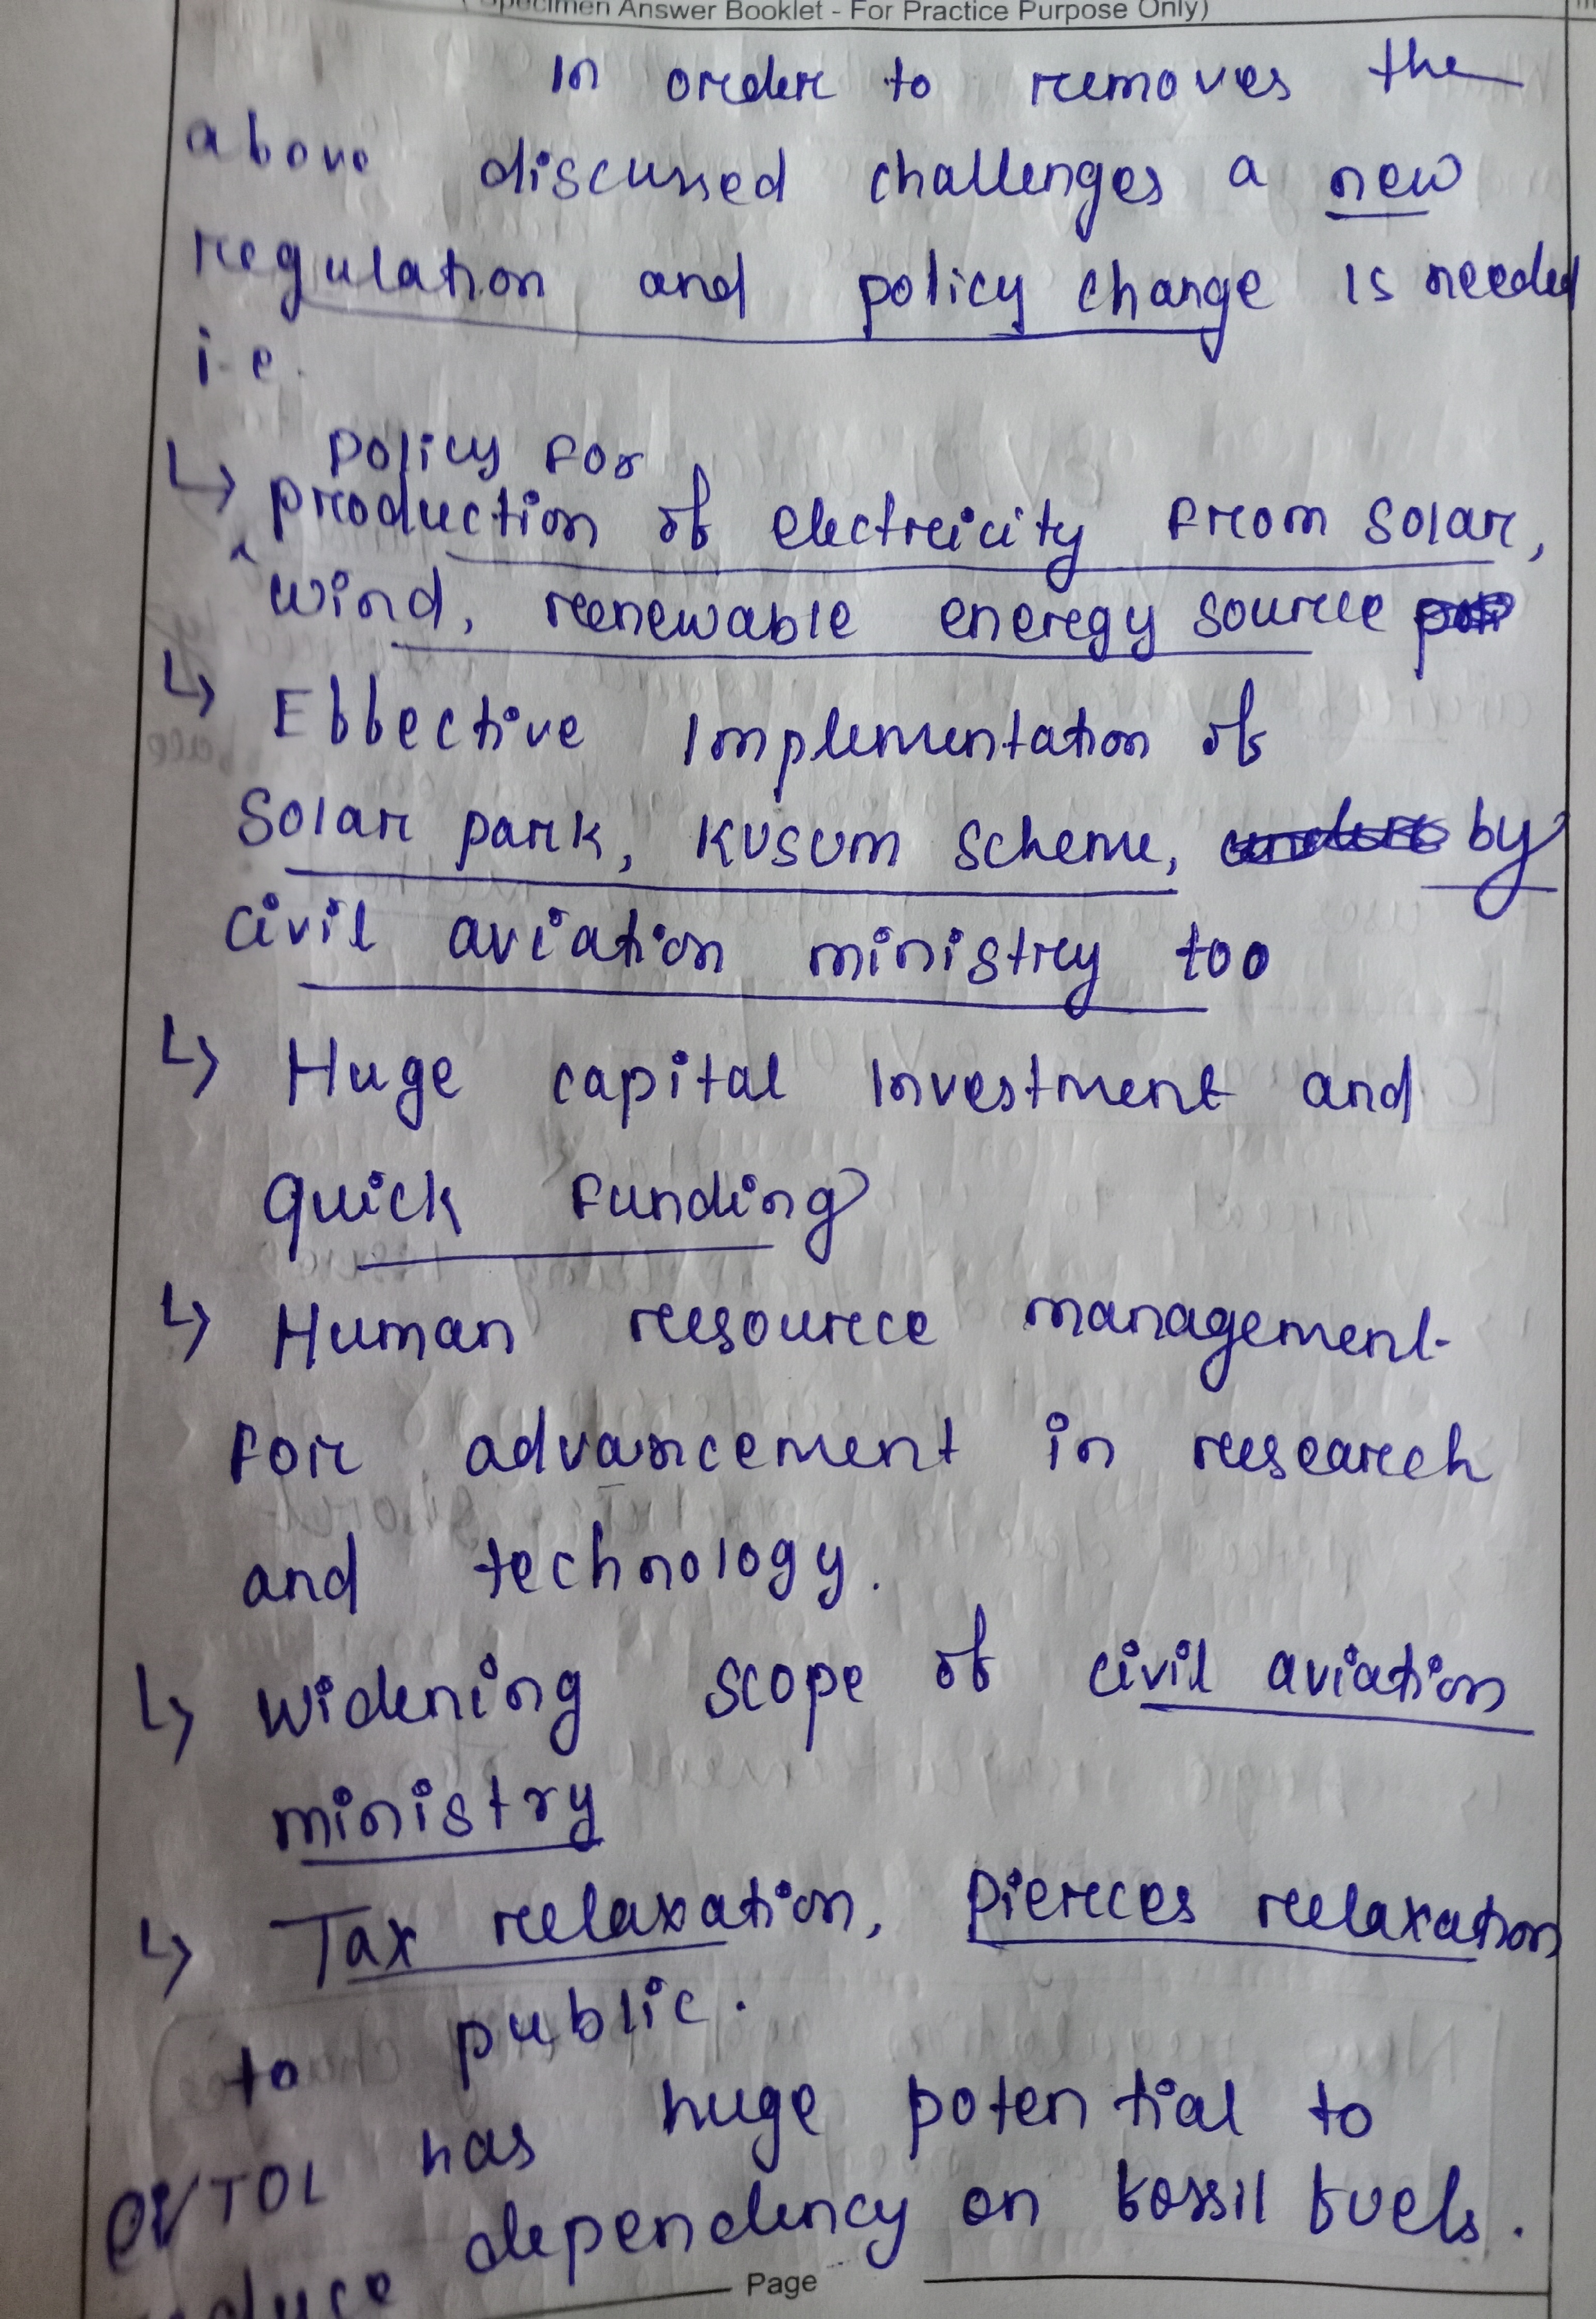 (Specimen Answer Booklet - For Practice Purpose Only)
In order to removes the
above discussed challenges a new
regulation and policy change is needed
i.e.
Policy for
↳ production of electricity from solar,
wind, renewable energy source
↳ Effective Implementation of
Solar park, KUSUM scheme, by
civil aviation ministry too
↳ Huge capital Investment and
quick funding
↳ Human resource management
for advancement in research
and technology.
↳ widening scope of civil aviation
ministry
↳ Tax relaxation, Pierces relaxation
to public.
eVTOL has huge potential to
reduce dependency on fossil fuels.
Page